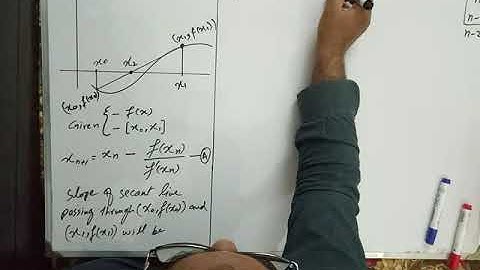 (x₁, f(x₁))
x₀ x₂
x₁
(x₀, f(x₀))
Given { - f(x)
- [x₀, x₁]
xₙ₊₁ = xₙ - f(xₙ)/f'(xₙ) - Ⓐ
Slope of secant line
passing through (x₀, f(x₀)) and
(x₁, f(x₁)) will be
n-2